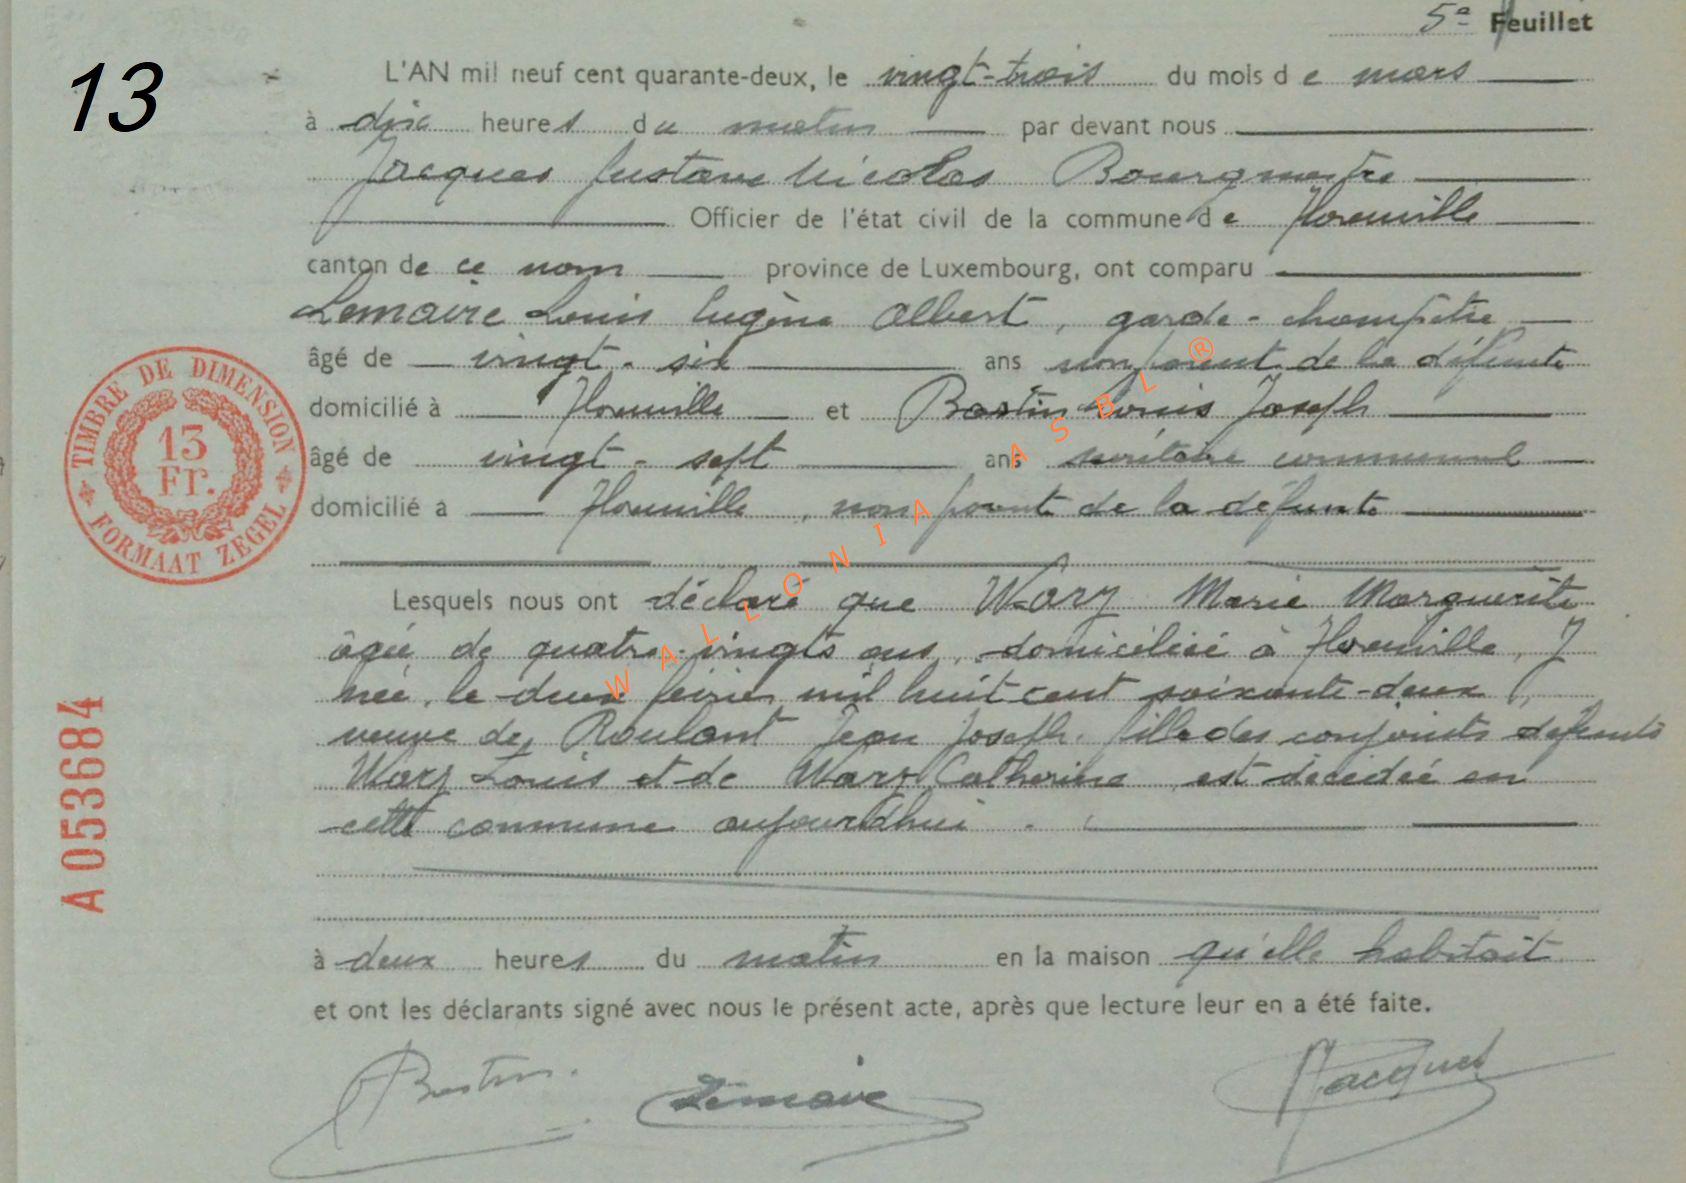 5e Feuillet
13
L'AN mil neuf cent quarante-deux, le vingt-trois du mois de mars
à dix heures du matin par devant nous
Jacques Gustave Nicolas Bourgmestre
Officier de l'état civil de la commune de Florenville
canton de ce nom province de Luxembourg, ont comparu
Lemaire Louis Eugène Albert, garde-champêtre
âgé de vingt-six ans non parent de la défunte
domicilié à Florenville et Bastin Louis Joseph
âgé de vingt-sept ans secrétaire communal
domicilié à Florenville, non parent de la défunte
Lesquels nous ont déclaré que Wary Marie Marguerite
âgée de quatre-vingts ans, domiciliée à Florenville,
née le deux février mil huit cent soixante-deux
veuve de Roulant Jean Joseph, fille des conjoints défunts
Wary Louis et de Wary Catherine est décédée en
cette commune aujourd'hui
à deux heures du matin en la maison qu'elle habitait
et ont les déclarants signé avec nous le présent acte, après que lecture leur en a été faite.
Bastin Lemaire Jacques
TIMBRE DE DIMENSION
13
Fr.
FORMAAT ZEGEL
A053684
WALLONIA ASBL ®